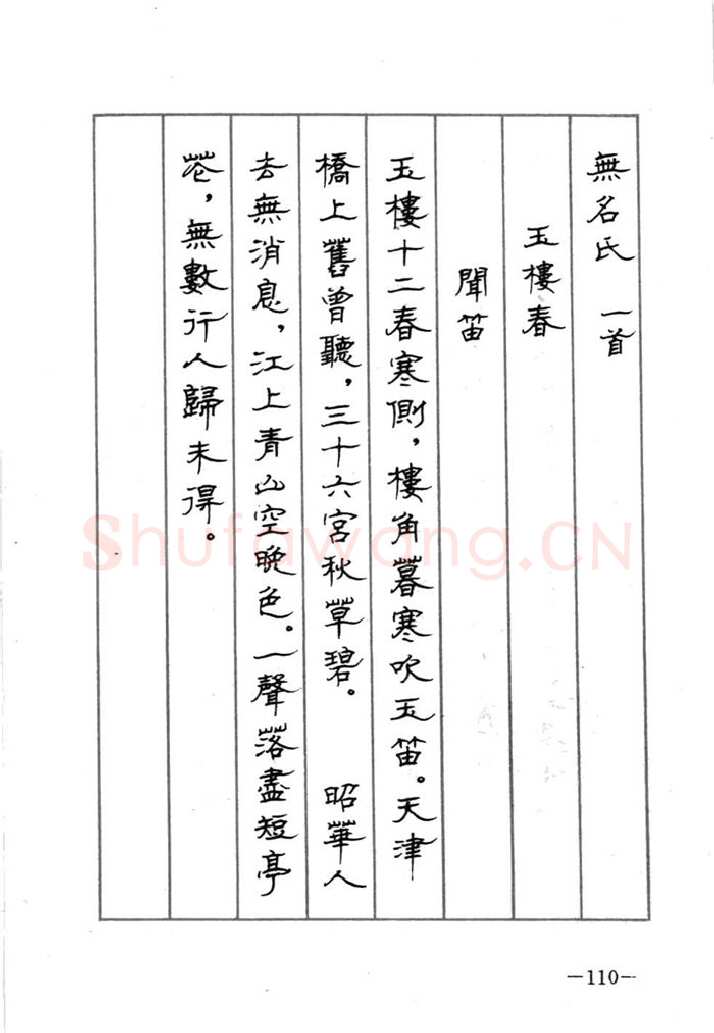 無名氏　一首
玉樓春
聞笛
玉樓十二春寒側，樓角暮寒吹玉笛。天津
橋上舊曾聽，三十六宮秋草碧。　昭華人
去無消息，江上青山空晚色。一聲落盡短亭
花，無數行人歸未得。
—110—
Shufawang.CN